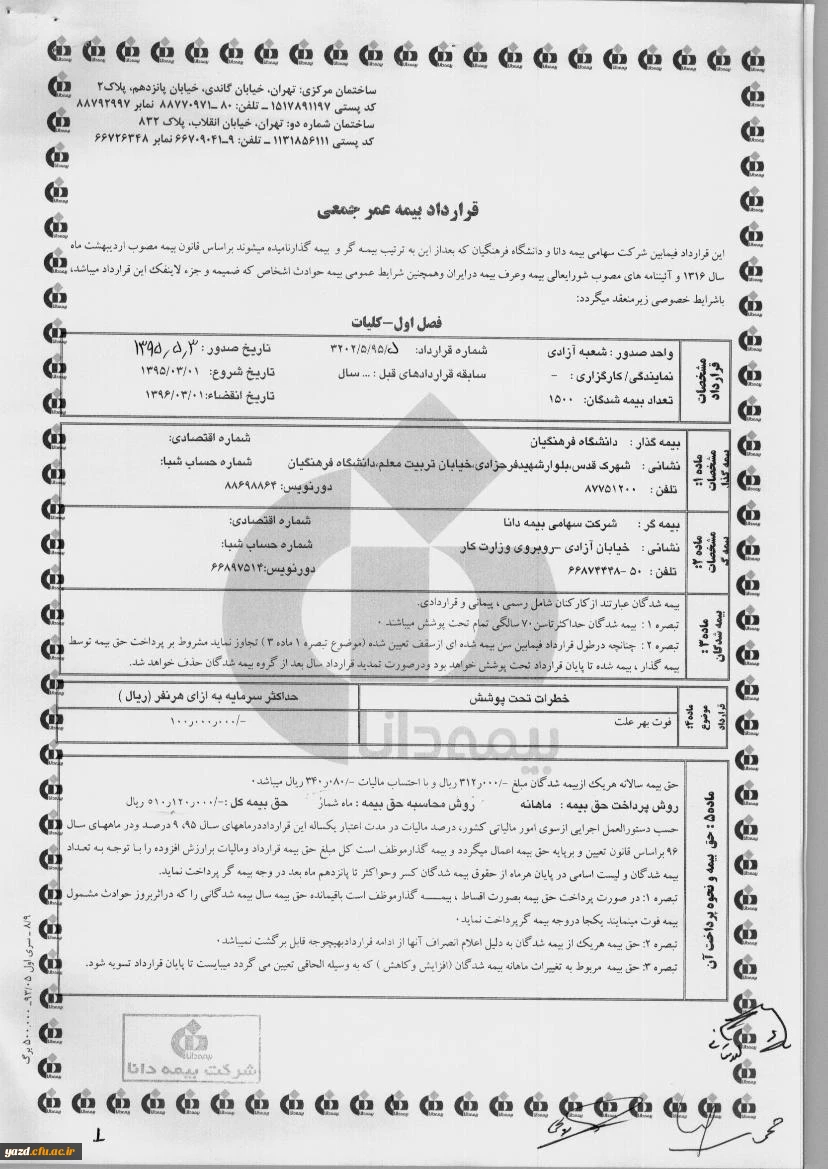 ساختمان مرکزی: تهران، خیابان گاندی، خیابان پانزدهم، پلاک۲
کد پستی ۱۵۱۷۸۹۱۱۹۷ ــ تلفن: ۸۰ ــ۸۸۷۷۰۹۷۱ نمابر ۸۸۷۹۲۹۹۷
ساختمان شماره دو: تهران، خیابان انقلاب، پلاک ۸۳۲
کد پستی ۱۱۳۱۸۵۶۱۱۱ ــ تلفن: ۹ــ۶۶۷۰۹۰۴۱ نمابر ۶۶۷۲۶۳۴۸
قرارداد بیمه عمر جمعی
این قرارداد فیمابین شرکت سهامی بیمه دانا و دانشگاه فرهنگیان که بعداز این به ترتیب بیمه گر و بیمه گذارنامیده میشوند براساس قانون بیمه مصوب اردیبهشت ماه
سال ۱۳۱۶ و آئیننامه های مصوب شورایعالی بیمه وعرف بیمه درایران وهمچنین شرایط عمومی بیمه حوادث اشخاص که ضمیمه و جزء لاینفک این قرارداد میباشد،
باشرایط خصوصی زیرمنعقد میگردد:
فصل اول-کلیات
مشخصات قرارداد
واحد صدور : شعبه آزادی شماره قرارداد: ۳۲۰۲/۵/۹۵/۵ تاریخ صدور : ۱۳۹۵,۵,۳
نمایندگی/ کارگزاری : - سابقه قراردادهای قبل : ... سال تاریخ شروع: ۱۳۹۵/۰۳/۰۱
تعداد بیمه شدگان: ۱۵۰۰ تاریخ انقضاء: ۱۳۹۶/۰۳/۰۱
ماده ۱: مشخصات بیمه گذار
بیمه گذار : دانشگاه فرهنگیان شماره اقتصادی:
نشانی : شهرک قدس،بلوارشهیدفرحزادی،خیابان تربیت معلم،دانشگاه فرهنگیان شماره حساب شبا:
تلفن : ۸۷۷۵۱۲۰۰ دورنویس: ۸۸۶۹۸۸۶۴
ماده ۲: مشخصات بیمه گر
بیمه گر : شرکت سهامی بیمه دانا شماره اقتصادی:
نشانی : خیابان آزادی -روبروی وزارت کار شماره حساب شبا:
تلفن : ۵۰ -۶۶۸۷۴۴۳۸ دورنویس:۶۶۸۹۷۵۱۴
ماده ۳ : بیمه شدگان
بیمه شدگان عبارتند ازکارکنان شامل رسمی ، پیمانی و قراردادی.
تبصره ۱ : بیمه شدگان حداکثرتاسن ۷۰ سالگی تمام تحت پوشش میباشند ۰
تبصره ۲ : چنانچه درطول قرارداد فیمابین سن بیمه شده ای ازسقف تعیین شده (موضوع تبصره ۱ ماده ۳ ) تجاوز نماید مشروط بر پرداخت حق بیمه توسط
بیمه گذار ، بیمه شده تا پایان قرارداد تحت پوشش خواهد بود ودرصورت تمدید قرارداد سال بعد از گروه بیمه شدگان حذف خواهد شد.
ماده ۴: موضوع قرارداد
خطرات تحت پوشش حداکثر سرمایه به ازای هرنفر (ریال )
فوت بهر علت ۱۰۰٫۰۰۰٫۰۰۰/-
ماده۵ : حق بیمه و نحوه پرداخت آن
حق بیمه سالانه هریک ازبیمه شدگان مبلغ -/۳۱۲٫۰۰۰ ریال و با احتساب مالیات -/۳۴۰٫۰۸۰ ریال میباشد۰
روش پرداخت حق بیمه : ماهانه روش محاسبه حق بیمه : ماه شمار حق بیمه کل :-/۵۱۰٫۱۲۰٫۰۰۰ ریال
حسب دستورالعمل اجرایی ازسوی امور مالیاتی کشور، درصد مالیات در مدت اعتبار یکساله این قرارداددرماههای سال ۹۵، ۹ درصد ودر ماههای سال
۹۶ براساس قانون تعیین و برپایه حق بیمه اعمال میگردد و بیمه گذارموظف است کل مبلغ حق بیمه قرارداد ومالیات برارزش افزوده را با توجه به تعداد
بیمه شدگان و لیست اسامی در پایان هرماه از حقوق بیمه شدگان کسر وحواکثر تا پانزدهم ماه بعد در وجه بیمه گر پرداخت نماید.
تبصره ۱: در صورت پرداخت حق بیمه بصورت اقساط ، بیمه گذارموظف است باقیمانده حق بیمه سال بیمه شدگانی را که دراثربروز حوادث مشمول
بیمه فوت مینمایند یکجا دروجه بیمه گرپرداخت نماید۰
تبصره ۲: حق بیمه هریک از بیمه شدگان به دلیل اعلام انصراف آنها از ادامه قراردادبهیچوجه قابل برگشت نمیباشد۰
تبصره ۳: حق بیمه مربوط به تغییرات ماهانه بیمه شدگان (افزایش وکاهش ) که به وسیله الحاقی تعیین می گردد میبایست تا پایان قرارداد تسویه شود.
۸/۹ ـ سری اول ۹۳/۰۵ـ ۵۰۰,۰۰۰ برگ
بیمه دانا
بیمه‌دانا
شرکت بیمه دانا
۱
yazd.cfu.ac.ir